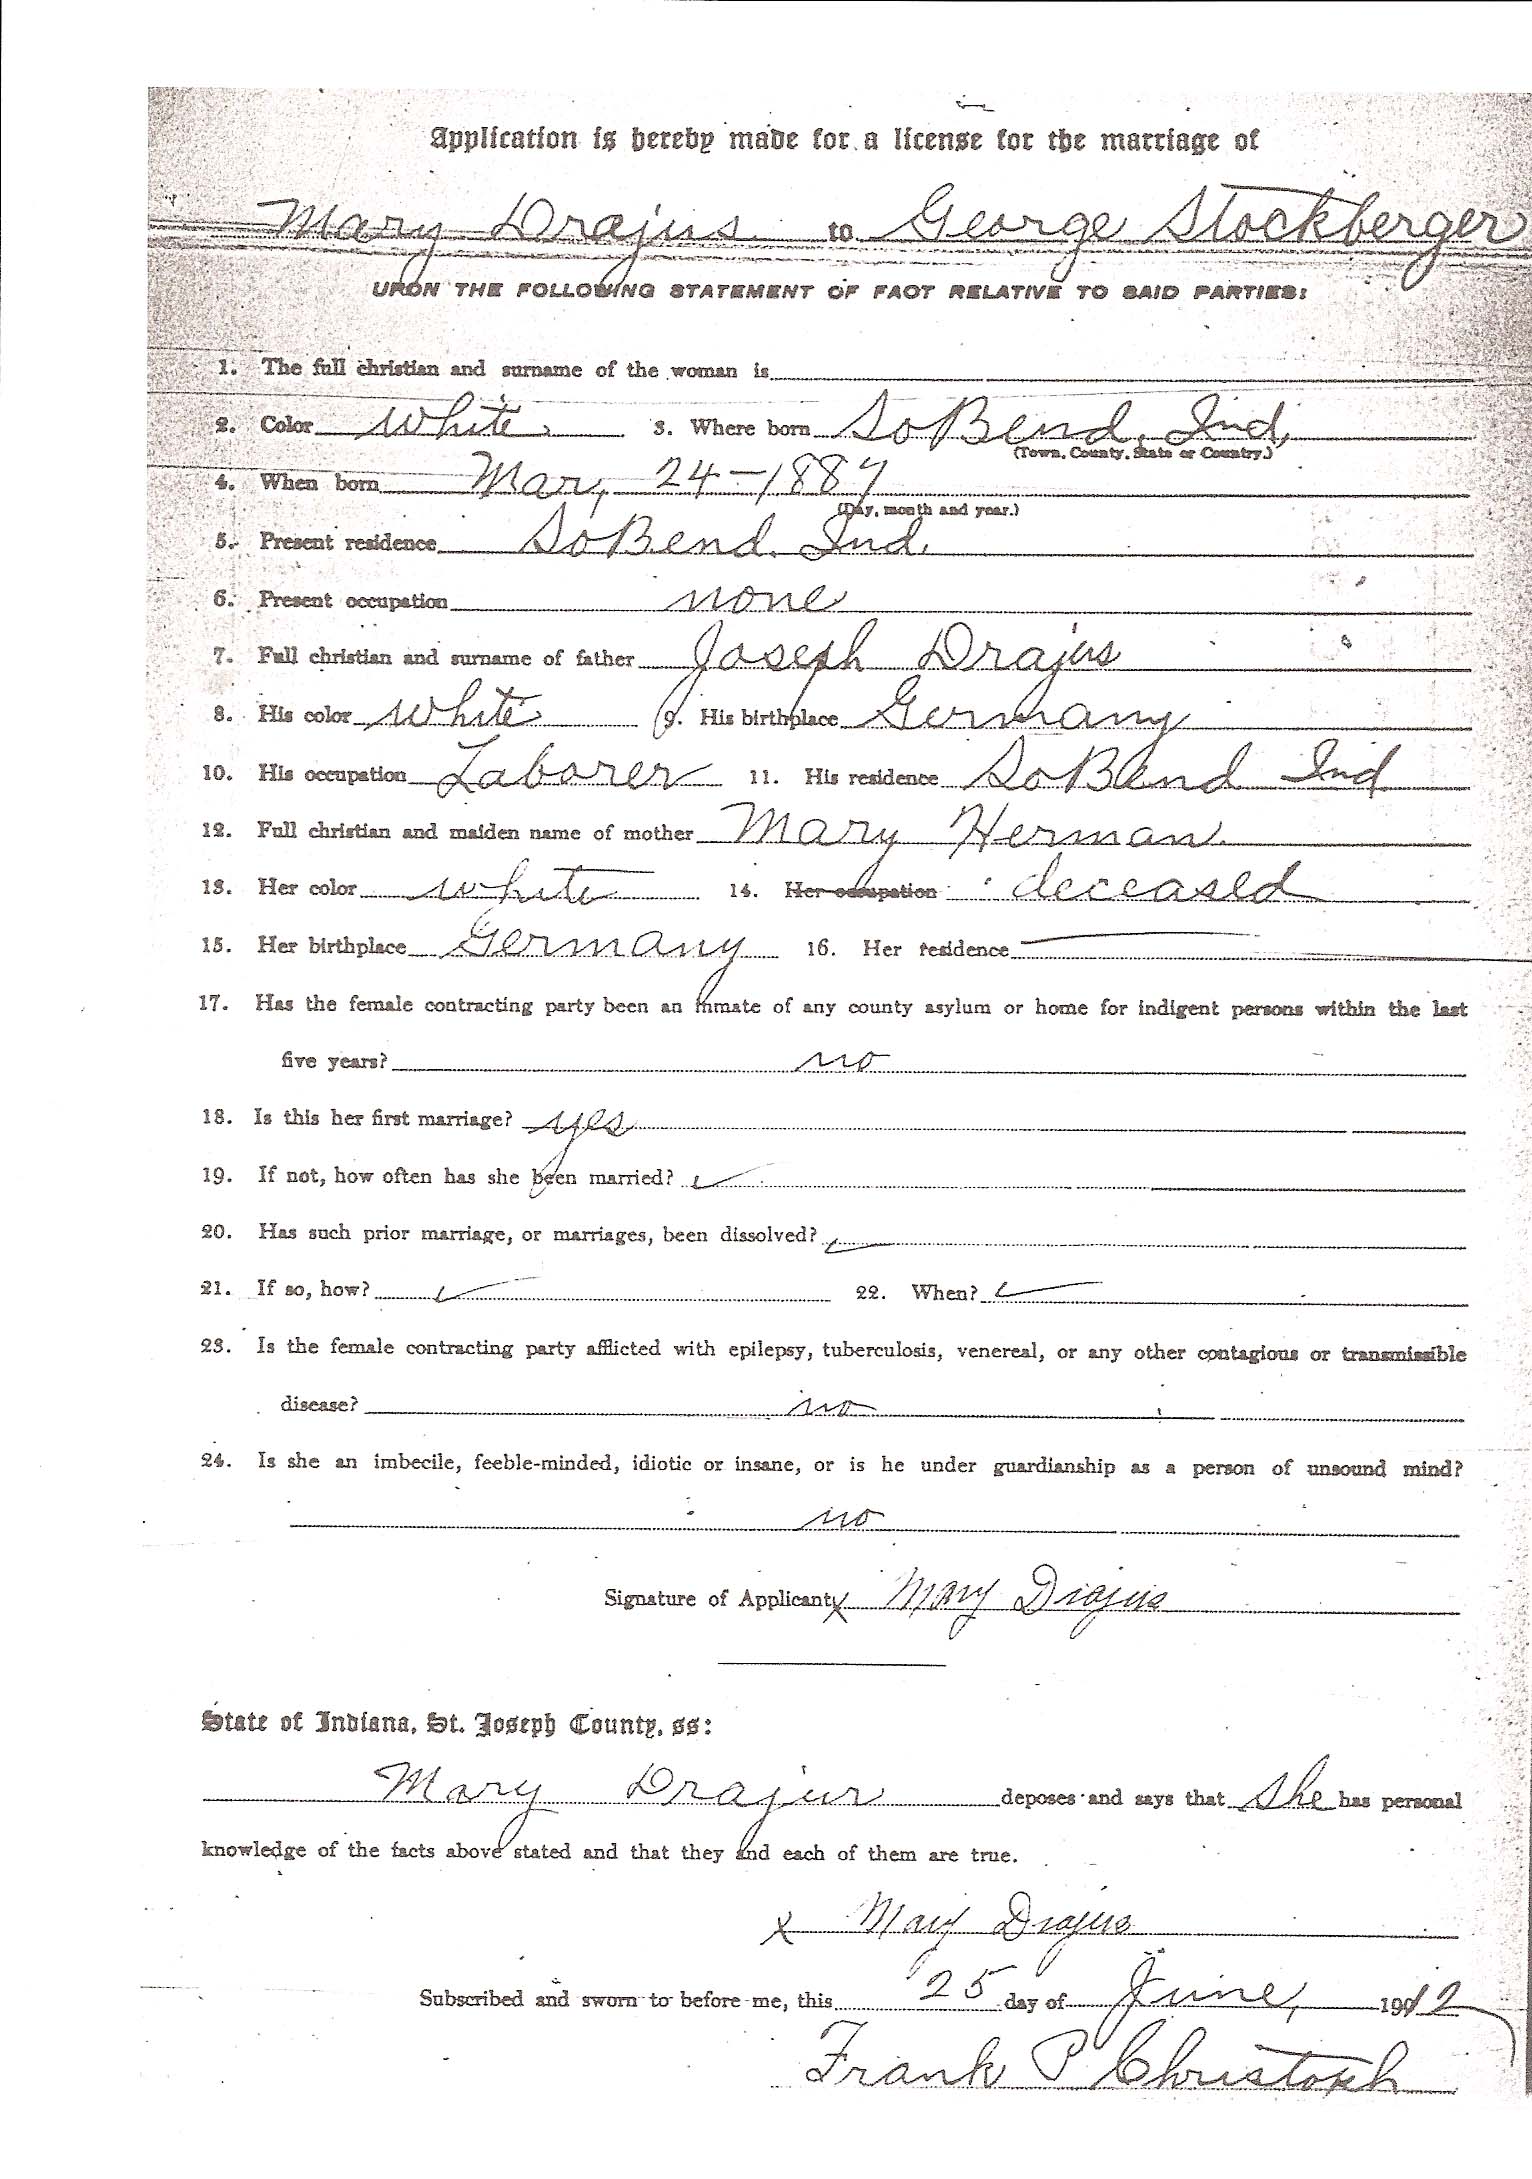 Application is hereby made for a license for the marriage of
Mary Drajus to George Stockberger
UPON THE FOLLOWING STATEMENT OF FACT RELATIVE TO SAID PARTIES:
1. The full christian and surname of the woman is
2. Color white 3. Where born So Bend, Ind,
(Town, County, State or Country.)
4. When born Mar, 24-1887
(Day, month and year.)
5. Present residence So Bend, Ind,
6. Present occupation none
7. Full christian and surname of father Joseph Drajus
8. His color white 9. His birthplace Germany
10. His occupation Laborer 11. His residence So Bend Ind
12. Full christian and maiden name of mother Mary Herman
13. Her color white 14. Her occupation deceased
15. Her birthplace Germany 16. Her residence
17. Has the female contracting party been an inmate of any county asylum or home for indigent persons within the last
five years? no
18. Is this her first marriage? yes
19. If not, how often has she been married?
20. Has such prior marriage, or marriages, been dissolved?
21. If so, how? 22. When?
23. Is the female contracting party afflicted with epilepsy, tuberculosis, venereal, or any other contagious or transmissible
disease? no
24. Is she an imbecile, feeble-minded, idiotic or insane, or is he under guardianship as a person of unsound mind?
no
Signature of Applicant x Mary Drajus
State of Indiana, St. Joseph County, ss:
Mary Drajus deposes and says that she has personal
knowledge of the facts above stated and that they and each of them are true.
x Mary Drajus
Subscribed and sworn to before me, this 25 day of June, 1912
Frank P Christoph